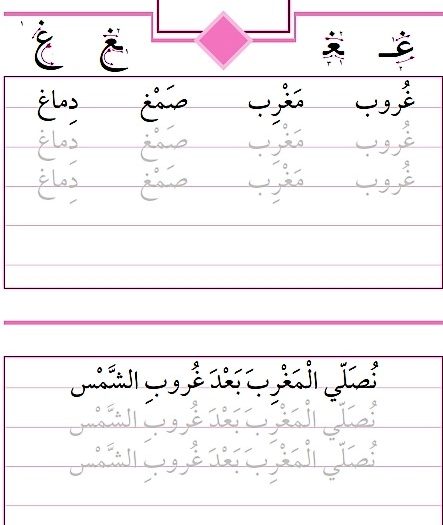 غـ ـغـ ـغ غ
غُروب مَغْرِب صَمْغ دِماغ
غُروب مَغْرِب صَمْغ دِماغ
غُروب مَغْرِب صَمْغ دِماغ
نُصَلّي الْمَغْرِبَ بَعْدَ غُروبِ الشَّمْس
نُصَلّي الْمَغْرِبَ بَعْدَ غُروبِ الشَّمْس
نُصَلّي الْمَغْرِبَ بَعْدَ غُروبِ الشَّمْس